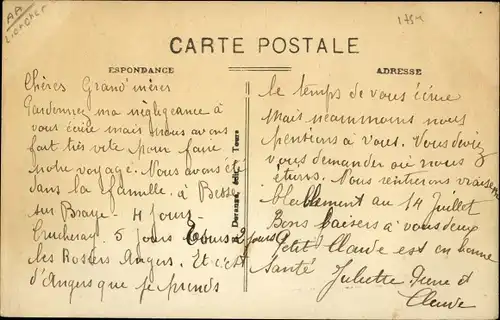 AA
LIERCHER
1754
CARTE POSTALE
ESPONDANCE
ADRESSE
Chères Grand'mères
Pardonnez ma négligeance à
vous écrire mais nous avons
fait très vite pour faire
notre voyage. Nous avons été
dans la famille. à Besse
sur Braye - 4 jours -
Crucheray. 5 jours Tours 2 jours
les Rosiers Angers. Et c'est
d'Angers que je prends
Tours
le temps de vous écrire
mais néammoins nous
pensions à vous. Vous deviez
vous demander où nous
étions. Nous rentrerons vraisem
blablement au 14 Juillet
Bons baisers à vous deux
Petit Claude est en bonne
santé Juliette Pierre et
Claude